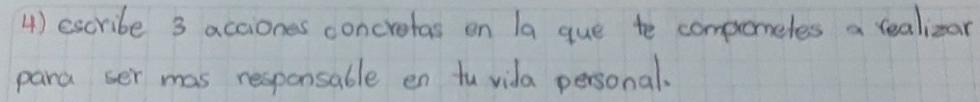 4) escribe 3 acciones concretas en la que te comprometes a realizar
para ser mas responsable en tu vida personal.